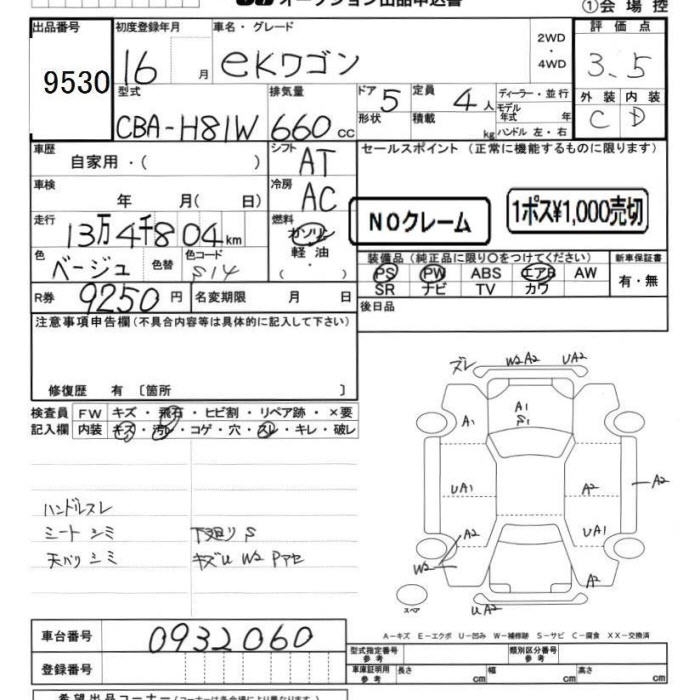 オークション出品申込書
①会場控
出品番号 初度登録年月 車名・グレード 2WD・4WD 評価点
9530 16 月 eKワゴン 3.5
型式 排気量 ドア 5 定員 4人 ディーラー・並行 外装 内装
CBA-H81W 660cc 形状 積載 kg モデル年式 年 C D
ハンドル 左・右
車歴 シフト セールスポイント(正常に機能するものに限ります)
自家用・( ) AT
車検 冷房
年 月( 日) AC NOクレーム 1ポス¥1,000売切
走行 燃料
13万4千804km ガソリン
軽油
( ・ )
色 色替 色コード 装備品(純正品に限り○をつけてください) 新車保証書
ベージュ S14 PS PW ABS エアB AW 有・無
SR ナビ TV カワ
R券 9250円 名変期限 月 日 後日品
注意事項申告欄(不具合内容等は具体的に記入して下さい)
修復歴 有 〔箇所 〕
検査員 FW キズ・飛石・ヒビ割・リペア跡・×要
記入欄 内装 キズ・汚レ・コゲ・穴・スレ・キレ・破レ
ハンドルスレ
シートシミ 下廻りS
天バリシミ キズU W2 Pアセ
ズレ W2 A2 UA2
A1
S1
A1
UA1 A2 A2
A2 UA1
W2 A2
スペア UA2
A-キズ E-エクボ U-凹み W-補修跡 S-サビ C-腐食 XX-交換済
車台番号 0932060
登録番号
型式指定番号 参考 類別区分番号 参考
車庫証明用 参考 長さ cm 幅 cm 高さ cm
希望出品コーナー(コーナーは会場により異なります)